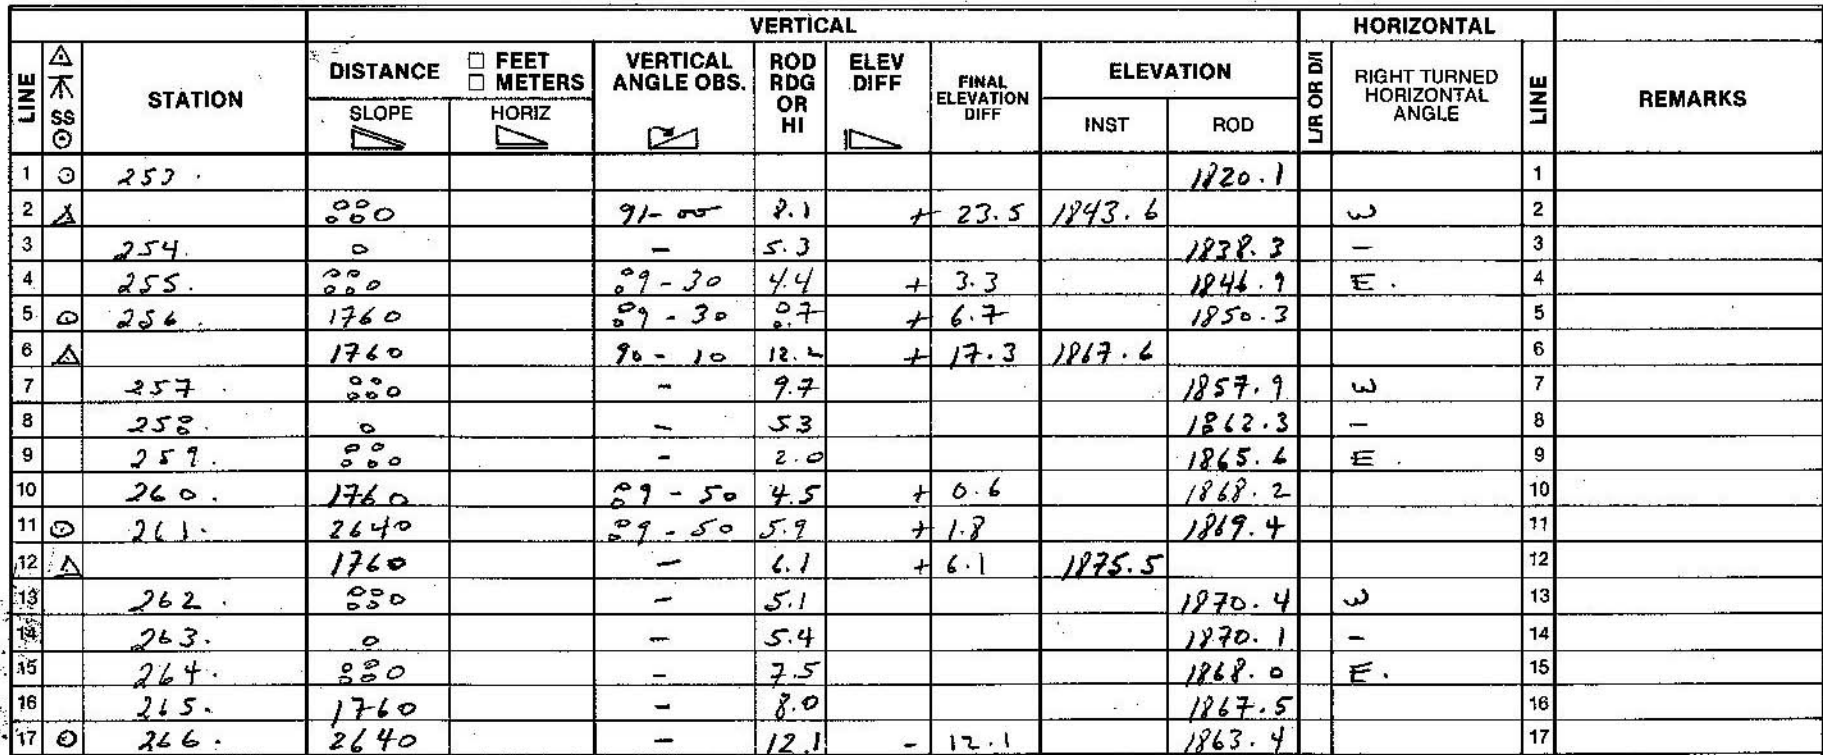 VERTICAL HORIZONTAL
LINE SS STATION DISTANCE □ FEET □ METERS VERTICAL ANGLE OBS. ROD RDG OR HI ELEV DIFF FINAL ELEVATION DIFF ELEVATION L/R OR D/I RIGHT TURNED HORIZONTAL ANGLE LINE REMARKS
SLOPE HORIZ INST ROD
1 ⊙ 253. 1820.1 1
2 880 91-00 8.1 + 23.5 1843.6 W 2
3 254. 0 - 5.3 1838.3 - 3
4 255. 880 89-30 4.4 + 3.3 1846.9 E. 4
5 ⊙ 256. 1760 89-30 8.7 + 6.7 1850.3 5
6 1760 90-10 12.2 + 17.3 1867.6 6
7 257. 880 - 9.7 1857.9 W 7
8 258. 0 - 5.3 1862.3 - 8
9 259. 880 - 2.0 1865.6 E. 9
10 260. 1760 89-50 4.5 + 0.6 1868.2 10
11 ⊙ 261. 2640 89-50 5.9 + 1.8 1869.4 11
12 1760 - 6.1 + 6.1 1875.5 12
13 262. 880 - 5.1 1870.4 W 13
14 263. 0 - 5.4 1870.1 - 14
15 264. 880 - 7.5 1868.0 E. 15
16 265. 1760 - 8.0 1867.5 16
17 ⊙ 266. 2640 - 12.1 - 12.1 1863.4 17